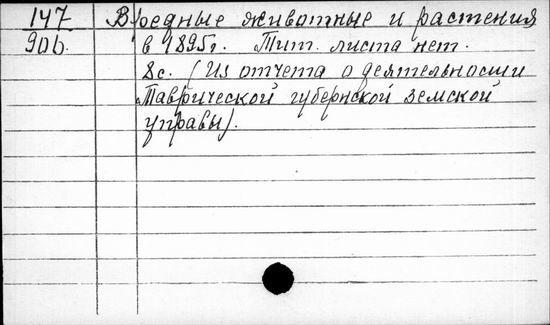 147 Вредные животные и растения
90б. в 1895г. Тит. листа нет.
8с. (Из отчета о деятельности
Таврической губернской земской
управы).